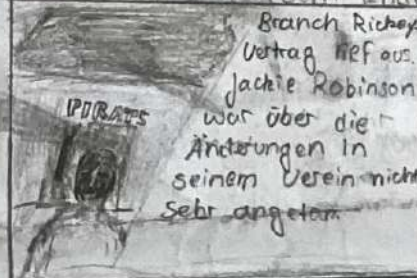 Branch Rickeys
Vertrag lief aus.
Jackie Robinson
war über die
Änderungen in
seinem Verein nicht
sehr angetan.
PIRATS